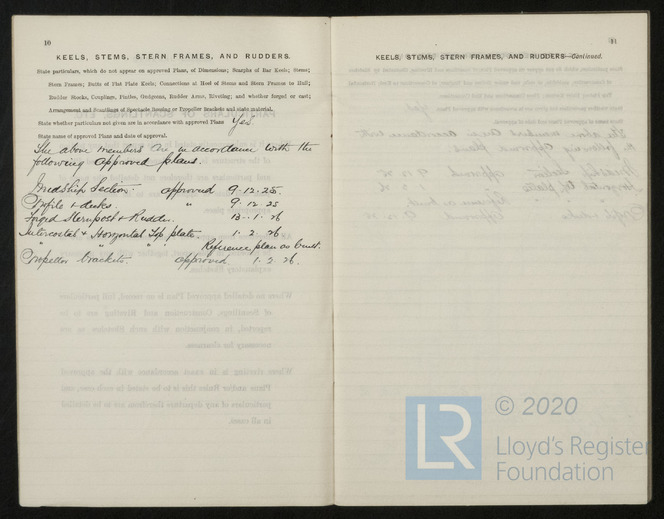 10
KEELS, STEMS, STERN FRAMES, AND RUDDERS.
State particulars, which do not appear on approved Plans, of Dimensions; Scarphs of Bar Keels; Stems;
Stern Frames; Butts of Flat Plate Keels; Connections at Heel of Stems and Stern Frames to Hull;
Rudder Stocks, Couplings, Pintles, Gudgeons, Rudder Arms, Riveting; and whether forged or cast;
Arrangement and Scantlings of Spectacle Bossing or Propeller Brackets and state material.
State whether particulars not given are in accordance with approved Plans Yes
State name of approved Plans and date of approval.
The above members are in accordance with the
following approved plans.
Midship Section. approved 9.12.25
Profile & decks. " 9.12.25
Forged Sternpost & Rudder. 13.1.26
Intercostal & Horizontal Top plate. 1.2.26
" " " Reference plan as built.
Propellor brackets. approved 1.2.26.
11
KEELS, STEMS, STERN FRAMES, AND RUDDERS—Continued.
LR
© 2020
Lloyd's Register
Foundation